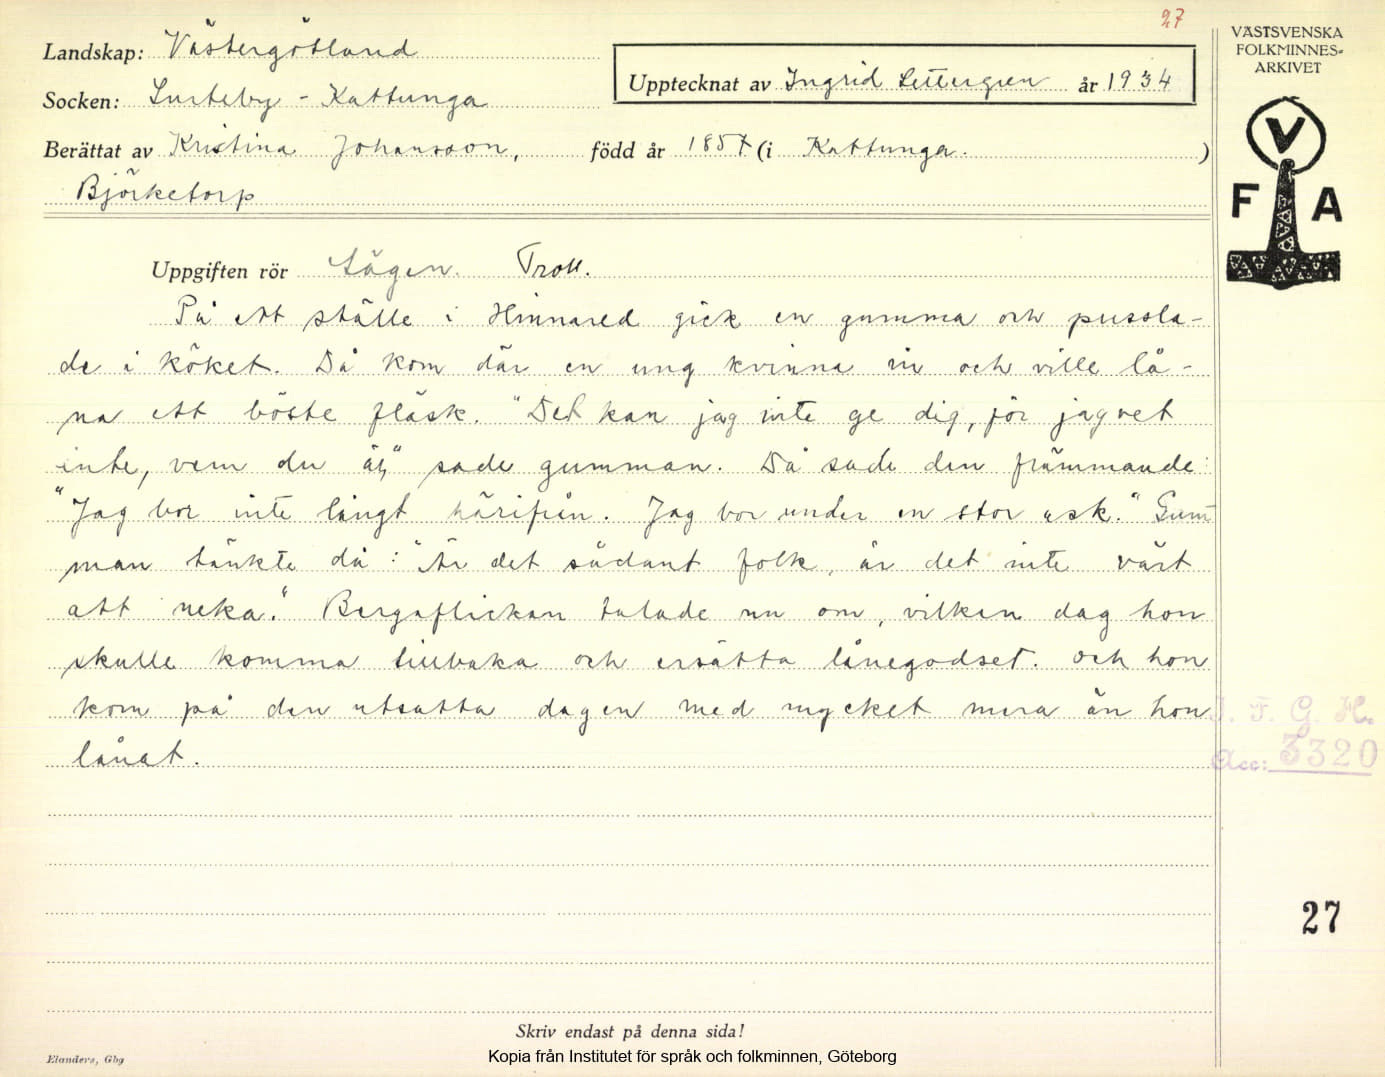 27
Landskap: Västergötland
VÄSTSVENSKA
FOLKMINNES-
ARKIVET
Upptecknat av Ingrid Settergren år 1934
Socken: Surteby - Kattunga
Berättat av Kristina Johansson, född år 1857 (i Kattunga. )
Björketorp
V
F A
Uppgiften rör Sägen. Troll.
På ett ställe i Hinnared gick en gumma och pussla-
de i köket. Då kom där en ung kvinna in och ville lå-
na ett böste fläsk. "Det kan jag inte ge dig, för jag vet
inte, vem du är," sade gumman. Då sade den främmande:
"Jag bor inte långt härifrån. Jag bor under en stor ask." Gum
man tänkte då: "Är det sådant folk, är det inte värt
att neka." Bergaflickan talade nu om, vilken dag hon
skulle komma tillbaka och ersätta lånegodset. Och hon
kom på den utsatta dagen med mycket mera än hon
lånat.
I. F. G. H.
Acc: 3320
27
Skriv endast på denna sida!
Elanders, Gbg
Kopia från Institutet för språk och folkminnen, Göteborg